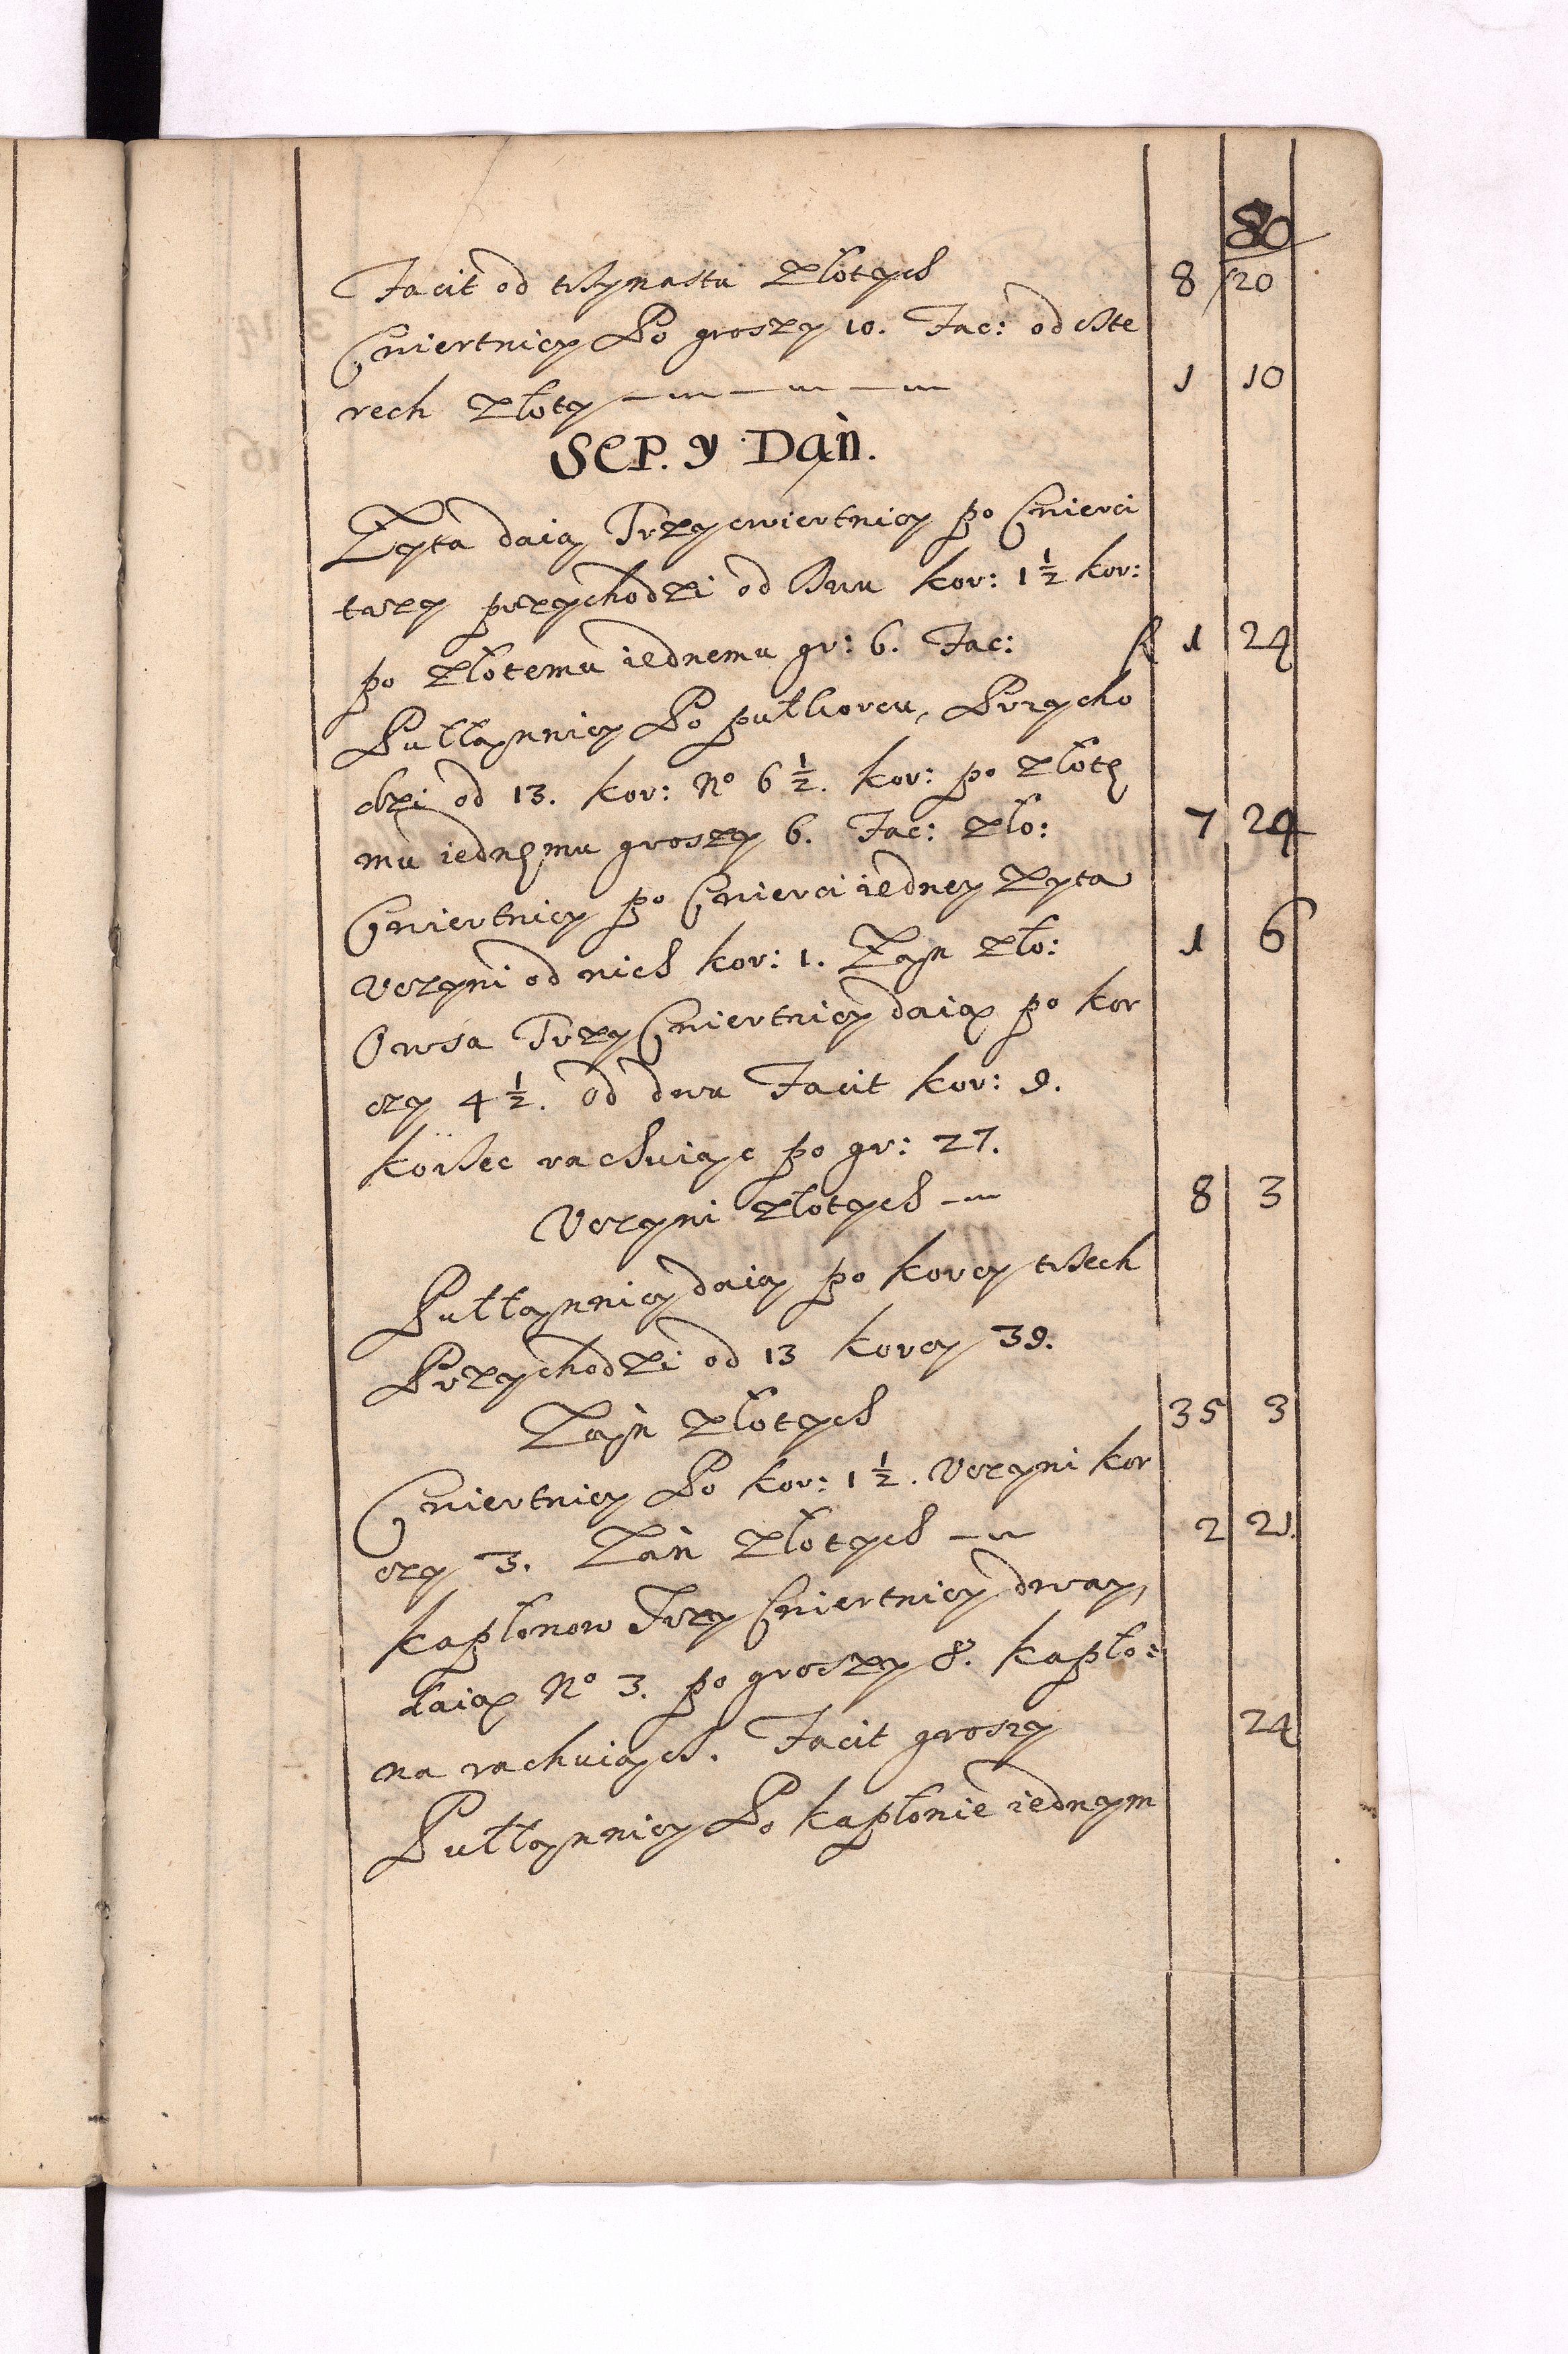 80
Facit od trzynastu Złotych 8 20
Cwiertnicy Po groszy 10. Fac: od czte
rech Złoty 1 10
SEP. y Dań.
Zyta daią Trzycwiertnicy po Cwierci
trzy przychodzi od Dwu kor: 1 1/2 kor:
po Złotemu iednemu gr: 6. Fac: fl 1 24
Pułłannicy Po pułkorcu, Przycho
dzi od 13. kor: No 6 1/2. kor: po Złotę
mu iednęmu groszy 6. Fac: Zło: 7 24
Cwiertnicy po Cwierci iedney Zyta
Uczyni od nich kor: 1. Zań Zło: 1 6
Owsa Trzy Cwiertnicy daią po kor
czy 4 1/2. od dwu Facit kor: 9.
korzec rachuiąc po gr: 27.
Uczyni Złotych 8 3
Pułłannicy daią po korcy trzech
Przychodzi od 13 korcy 39.
Zań Złotych 35 3
Cwiertnicy Po kor: 1 1/2. Uczyni kor
czy 3. Zań Złotych 2 21.
kapłonow Trzy Cwiertnicy dway,
daią No 3. po groszy 8. kapło:
na rachuiącz. Facit groszy 24
Pułłannicy Po kapłonie iednym